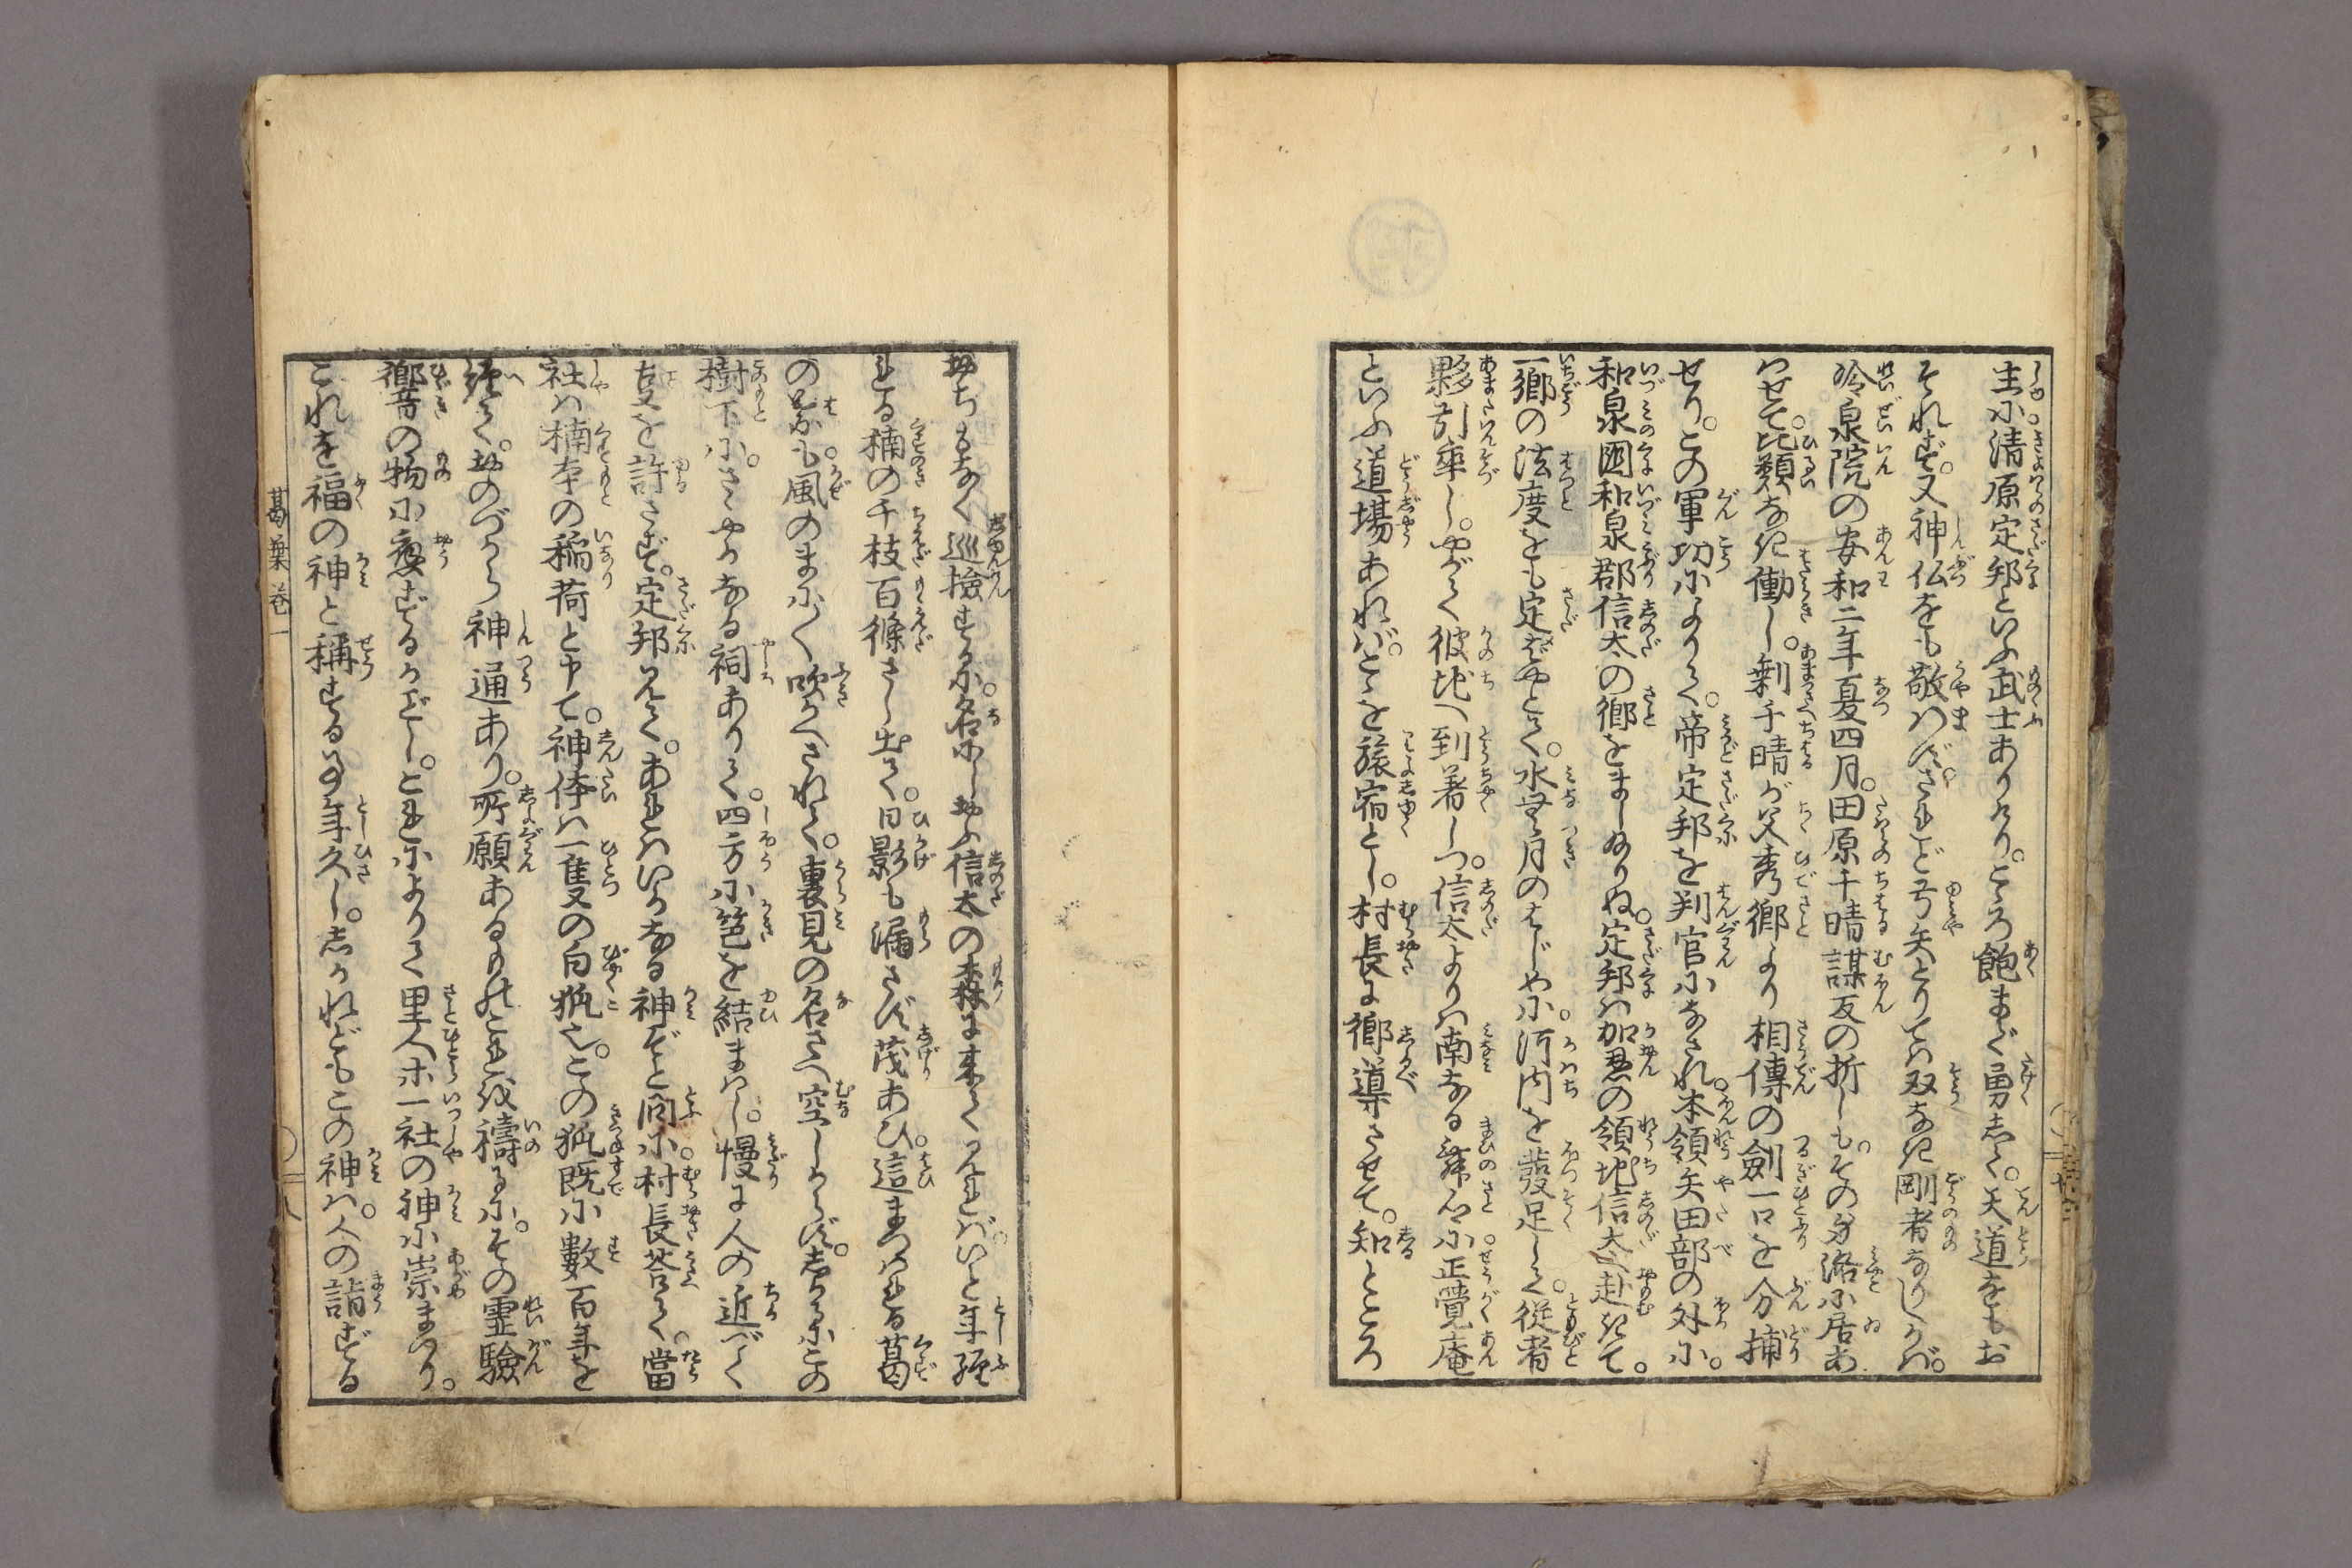 生に清原定邦といふ武士ありけり。こゝろ飽まで勇しく。天道をもお
それず。又神仏をも敬はず。されど弓矢とりては双なき剛者なりしかば。
冷泉院の安和二年夏四月。田原千晴謀反の折しも。その身洛に居あ
はせて。比類なき働し。剰千晴が父秀郷より相傳の劍一口を分捕
せり。この軍功によりて。帝定邦を判官になされ。本領矢田部の外に。
和泉國和泉郡信太の郷をましゐりぬ。定邦は加恩の領地信太へ赴きて。
一郷の法度をも定ばやとて。水無月のはじめに。河内を發足して。従者
夥引率し。やがて彼地へ到着しつ。信太よりは南なる舞の小正覺庵
といふ道場あれば。こゝを旅宿とし。村長に郷導させて。知ところ
おちもなく巡撿するに。名にしおふ信太の森に来て見れば。いと年經
たる楠の千枝百條さし出て。日影も漏さず茂あひ。這まつはれる葛
の葉も。風のまに〳〵吹かへされて。裏見の名さへ空しからず。しかるにこの
樹下に。さゝやかなる祠ありて。四方に笆を結まはし。慢に人の近づく
ことを許さず。定邦見て。あれはいかなる神ぞと問に。村長荅て。當
社は楠本の稲荷と申て。神体は一隻の白狐也。この狐既に數百年を
經て。おのづから神通あり。所願あるものこれを禱るに。その霊驗
響の物に應ずるがごとし。これによりて里人ホ一社の神に崇まつり。
これを福の神と稱すること年久し。しかれどもこの神は。人の詣ずる
葛葉巻一